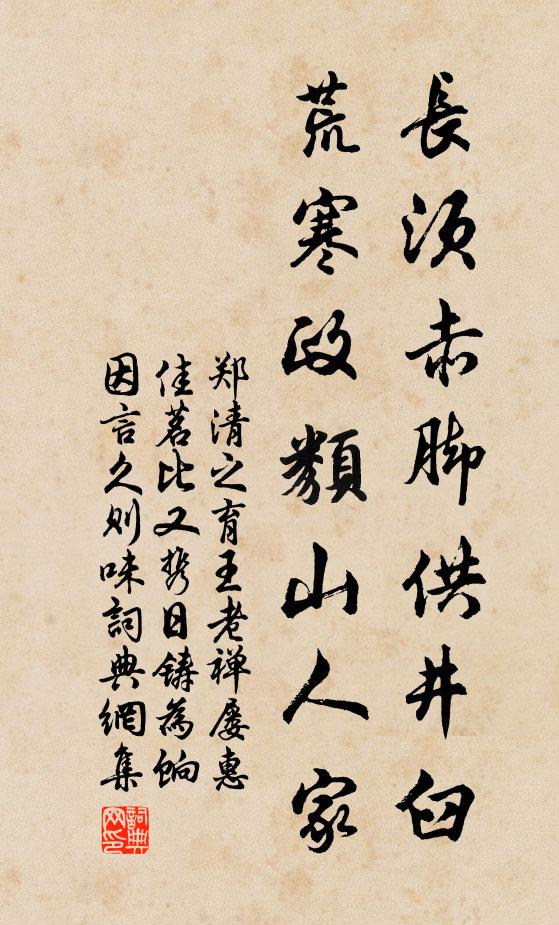 長須赤脚供井臼
荒寒政類山人家
郑清之育王老禅屡惠
佳茗比又携日鑄為餉
因言久则味詞典網集
詞典网印